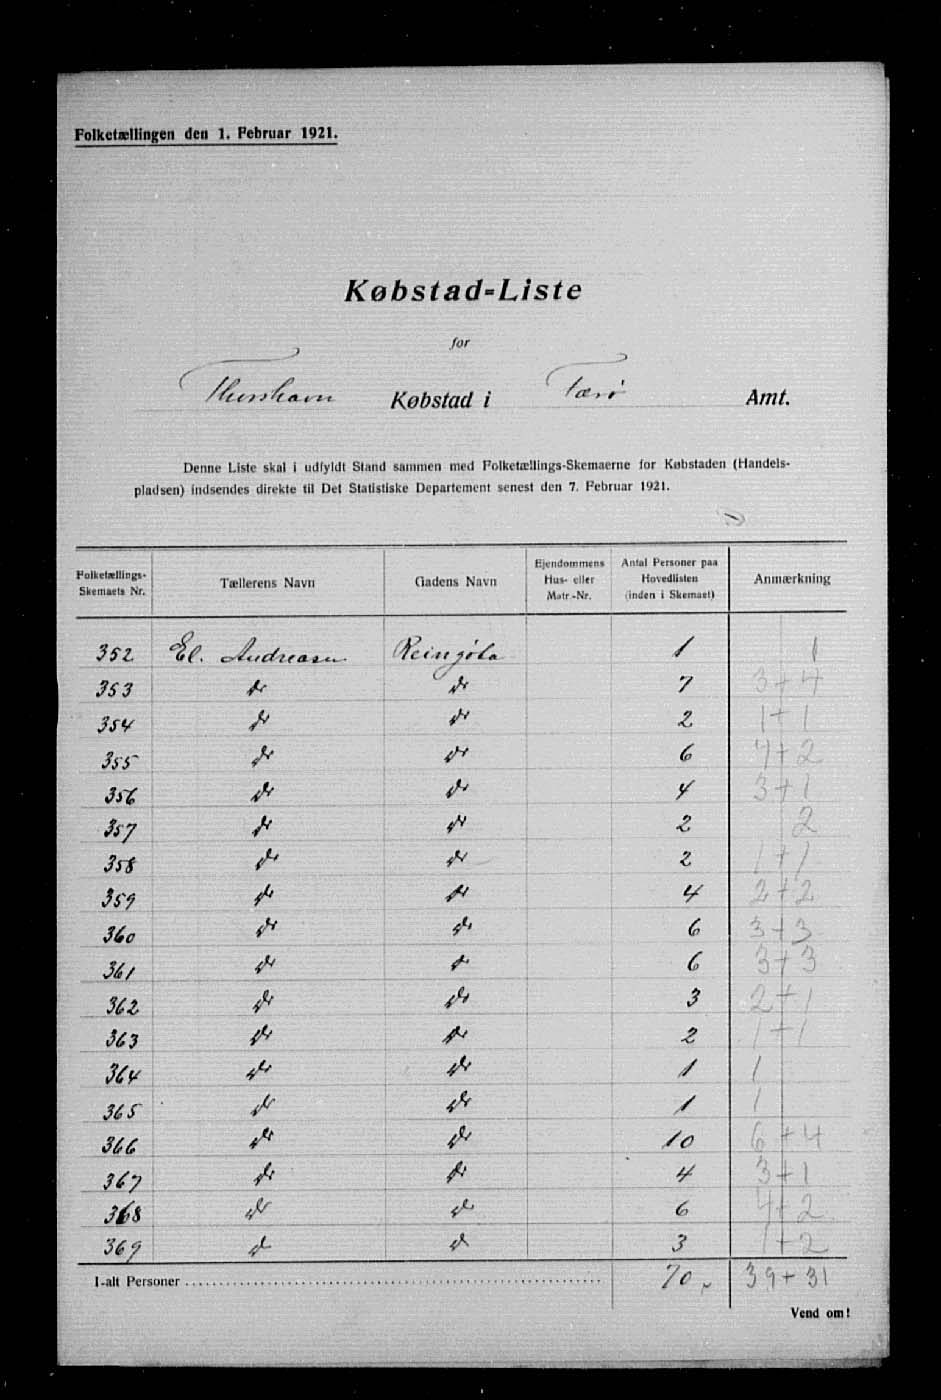 Folketællingen den 1. Februar 1921.
Købstad-Liste
for
Thorshavn Købstad i Færø Amt.
Denne Liste skal i udfyldt Stand sammen med Folketællings-Skemaerne for Købstaden (Handels-
pladsen) indsendes direkte til Det Statistiske Departement senest den 7. Februar 1921.
Folketællings-Skemaets Nr. Tællerens Navn Gadens Navn Ejendommens Hus- eller Matr.-Nr. Antal Personer paa Hovedlisten (inden i Skemaet) Anmærkning
352 El. Andreasen Reingøta 1 1
353 do do 7 3+4
354 do do 2 1+1
355 do do 6 4+2
356 do do 4 3+1
357 do do 2 2
358 do do 2 1+1
359 do do 4 2+2
360 do do 6 3+3
361 do do 6 3+3
362 do do 3 2+1
363 do do 2 1+1
364 do do 1 1
365 do do 1 1
366 do do 10 6+4
367 do do 4 3+1
368 do do 6 4+2
369 do do 3 1+2
I-alt Personer 70 39+31
Vend om!